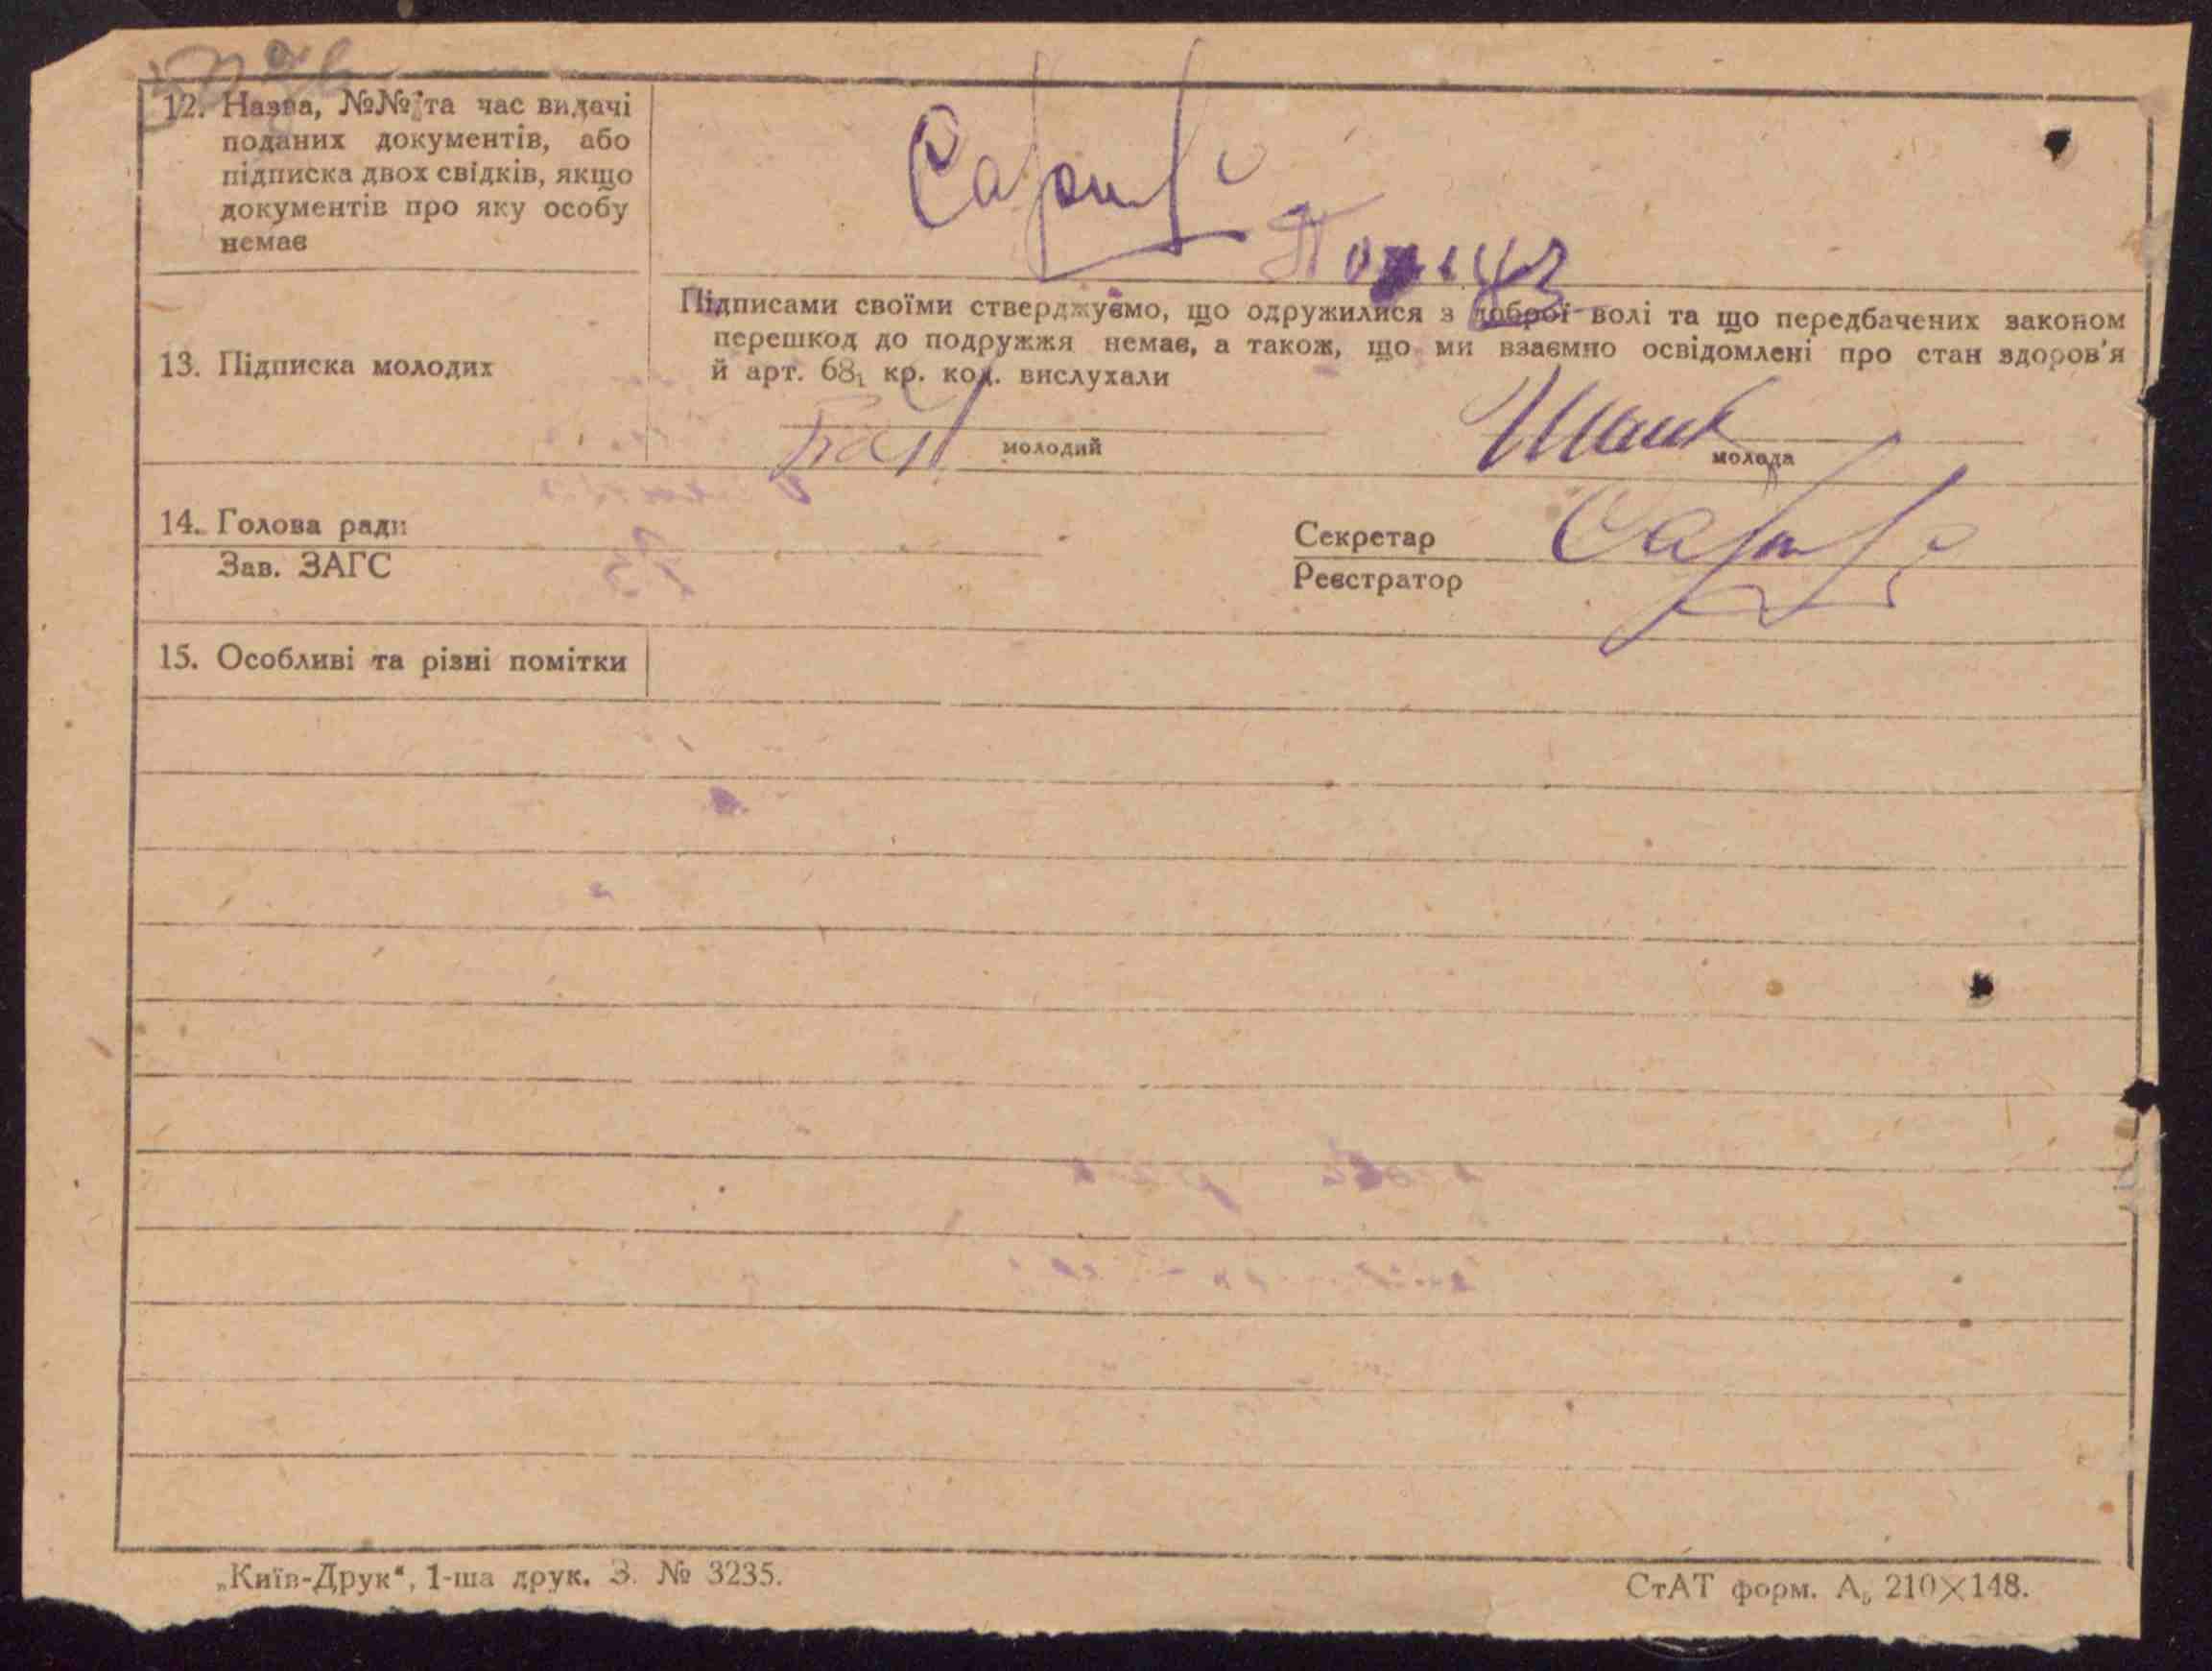 12. Назва, №№ та час видачі
поданих документів, або
підписка двох свідків, якщо
документів про яку особу
немає
13. Підписка молодих
Підписами своїми стверджуємо, що одружилися з доброї волі та що передбачених законом
перешкод до подружжя немає, а також, що ми взаємно освідомлені про стан здоров'я
й арт. 68₁ кр. код. вислухали
молодий
молода
14. Голова ради
Зав. ЗАГС
Секретар
Реєстратор
15. Особливі та різні помітки
„Київ-Друк“, 1-ша друк. З. № 3235.
СтАТ форм. А₅ 210×148.